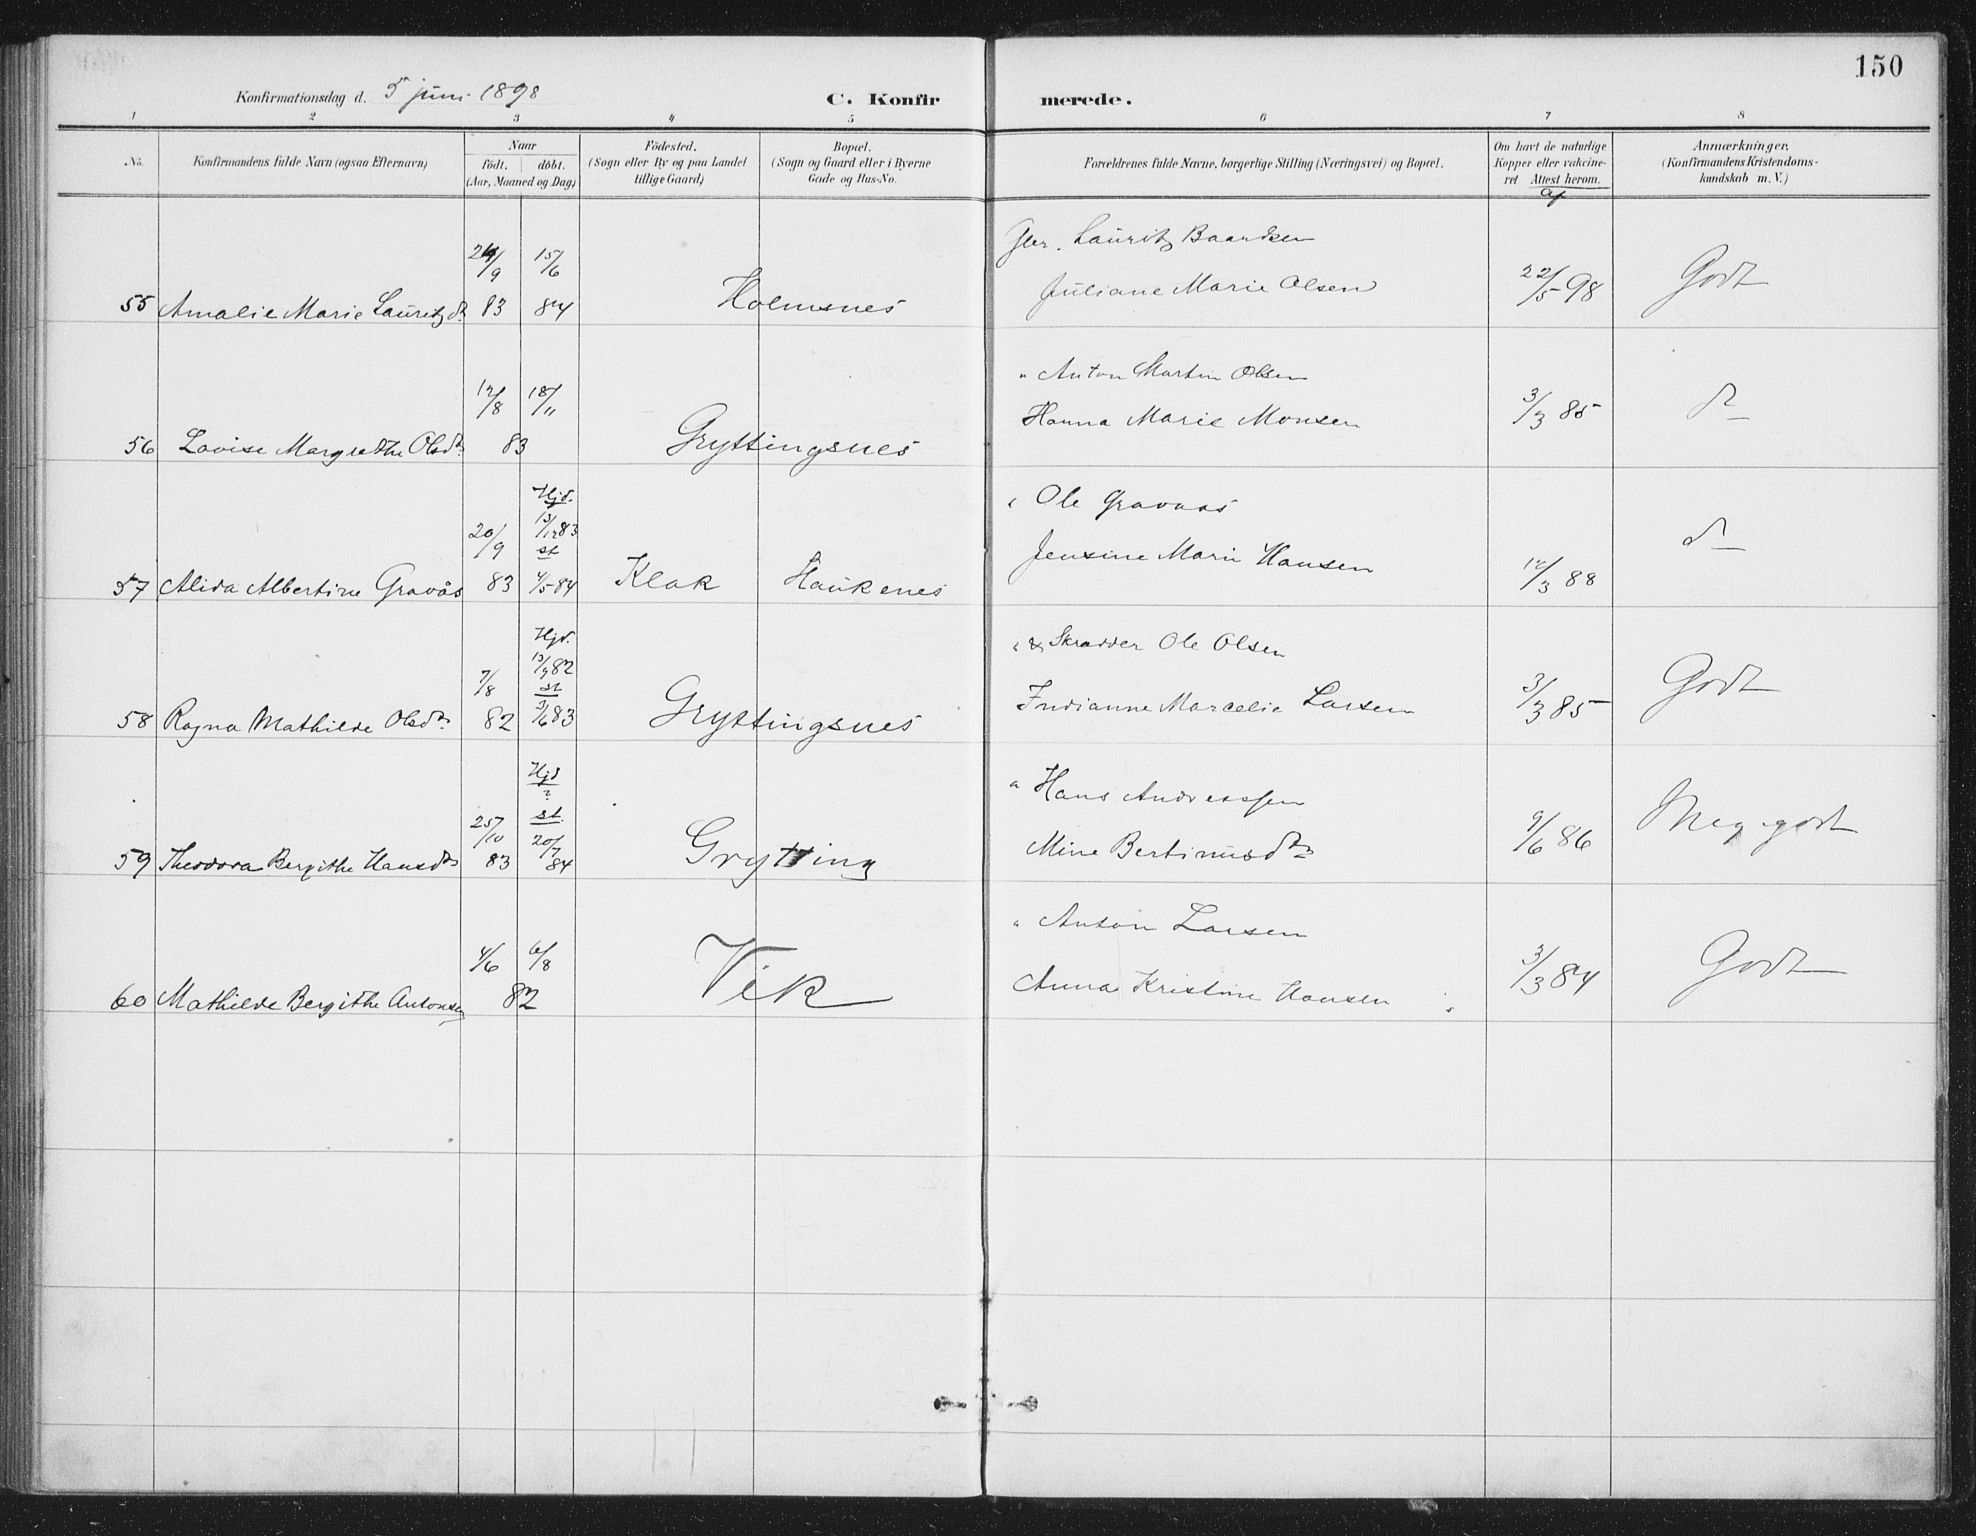 150
Konfirmationsdag d. 5 juni 1898
C. Konfirmerede.
1 2 3 4 5 6 7 8
No.
Konfirmandens fulde Navn (ogsaa Efternavn)
Naar
födt. döbt.
(Aar, Maaned og Dag)
Födested.
(Sogn eller By og paa Landet
tillige Gaard)
Bopæl.
(Sogn og Gaard eller i Byerne
Gade og Hus-No.
Forældrenes fulde Navne, borgerlige Stilling (Næringsvei) og Bopæl.
Om havt de naturlige
Kopper eller vakcine-
ret Attest herom.
af
Anmærkninger.
(Konfirmandens Kristendoms-
kundskab m. V.)
55 Amalie Marie Lauritzdr.
24/9 83
15/6 84
Holmsnes
Lauritz Baardsen
Juliane Marie Olsen
22/5 98
Godt
56 Lovise Margrethe Olsdr.
12/8 18/11
83
Gryttingsnes
" Anton Martin Olsen
Hanna Marie Monsen
3/3 85
do
57 Alida Albertine Gravås
20/9 83
Hjd.
13/12 83
st
4/5 84
Klak
Haukenes
" Ole Gravaas
Jensine Marie Hansen
12/3 88
do
58 Ragna Mathilde Olsdr.
7/8 82
Hjd.
13/9 82
st
3/6 83
Gryttingsnes
" & Skrædder Ole Olsen
Indianne Marcelie Larsen
3/3 85
Godt
59 Theodora Bergithe Hansdr
25/10 83
Hjd
?
st.
20/7 84
Grytting
" Hans Andreassen
Mine Bertinusdr
9/6 86
Meg. godt
60 Mathilde Bergithe Antonsen
4/6 6/8
82
Vik
" Anton Larsen
Anna Kristine Hansen
3/3 84
Godt